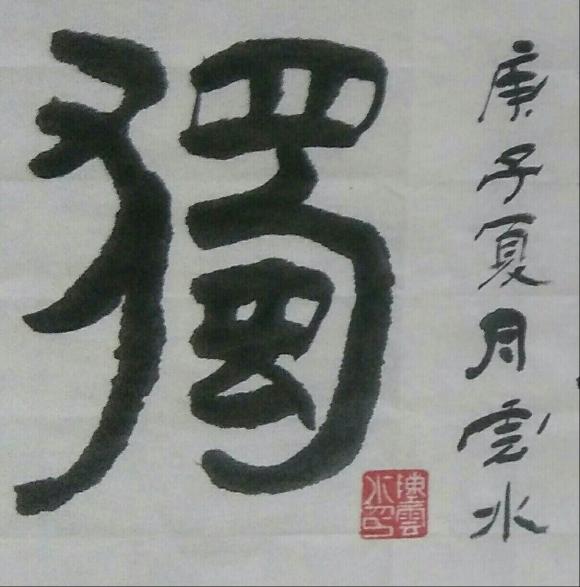 獨
庚子夏月雲水
陳雲水印